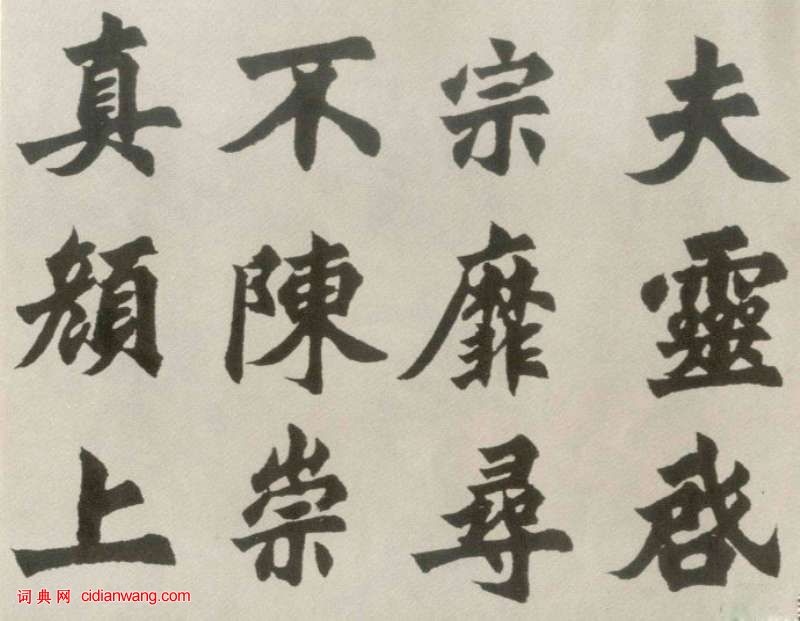 夫靈啓
宗靡尋
不陳崇
真顔上
词典网 cidianwang.com